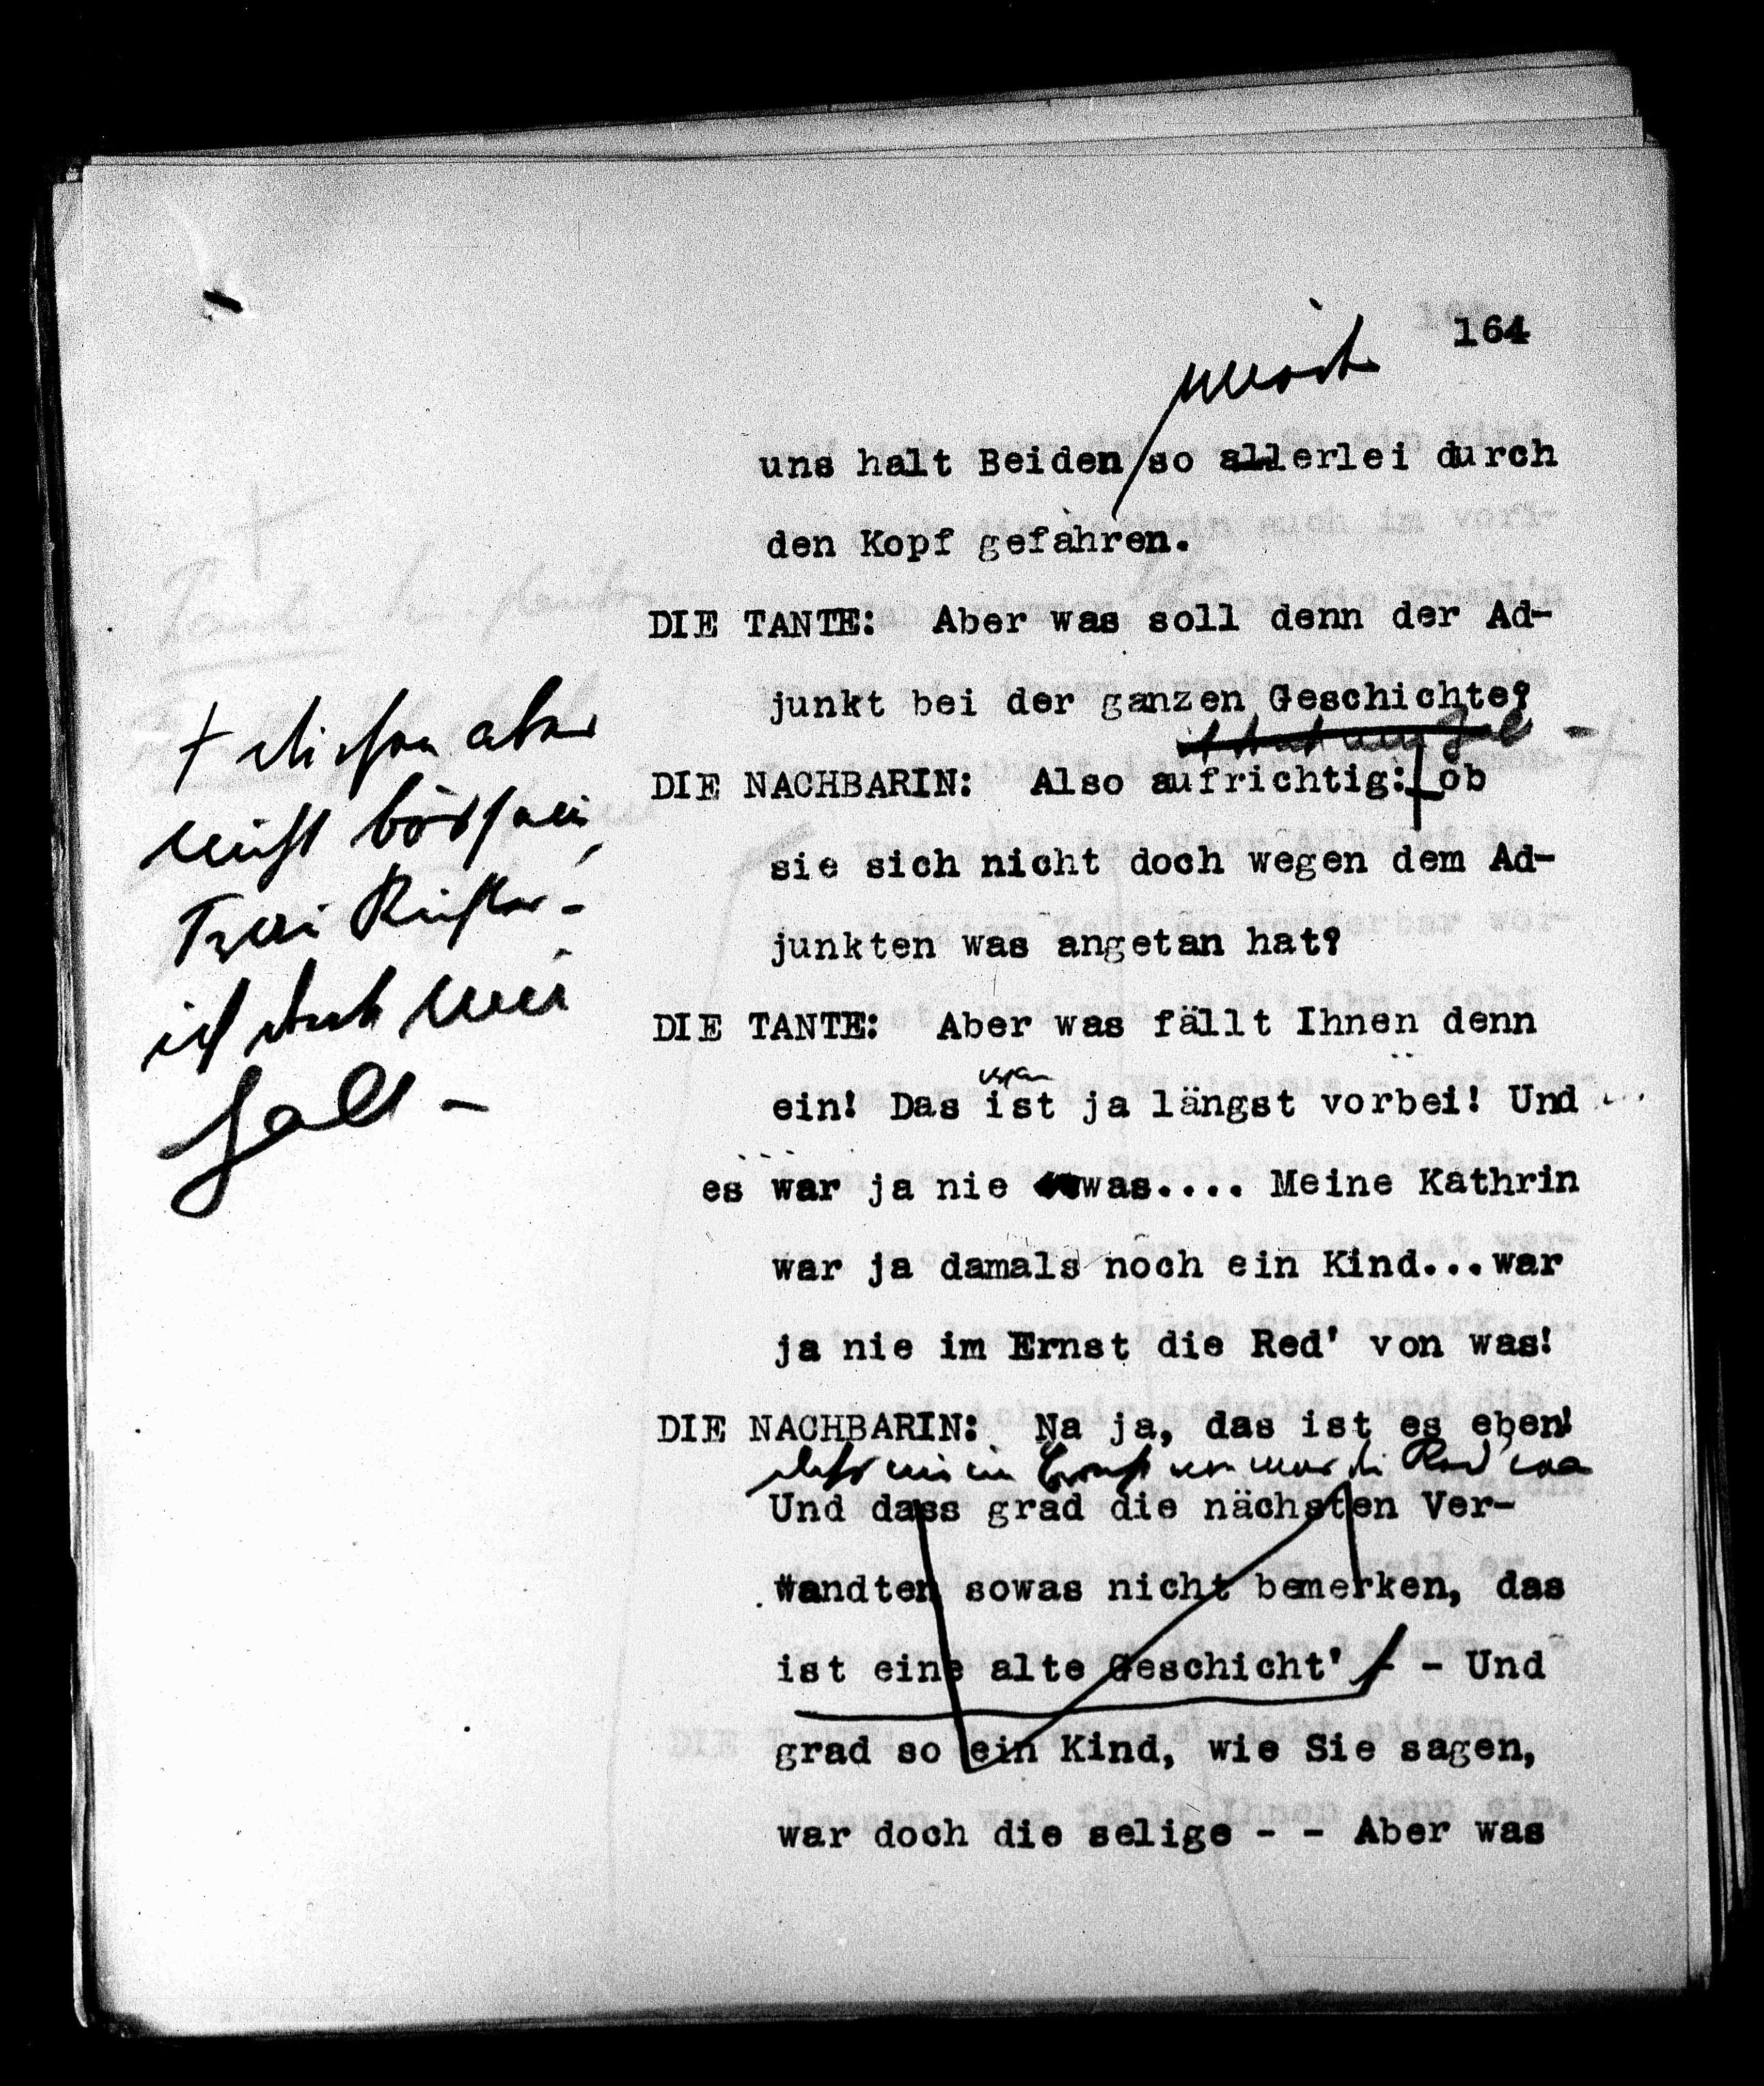 164
uns halt Beiden so allerlei durch
den Kopf gefahren.
DIE TANTE: Aber was soll denn der Ad-
junkt bei der ganzen Geschichte?
DIE NACHBARIN: Also aufrichtig: ob
sie sich nicht doch wegen dem Ad-
junkten was angetan hat?
DIE TANTE: Aber was fällt Ihnen denn
ein! Das ist ja längst vorbei! Und
es war ja nie was.... Meine Kathrin
war ja damals noch ein Kind...war
ja nie im Ernst die Red' von was!
DIE NACHBARIN: Na ja, das ist es eben!
dass nie im Ernst von was die Red' war
Und dass grad die nächsten Ver-
wandten sowas nicht bemerken, das
ist eine alte Geschicht' - - Und
grad so ein Kind, wie Sie sagen,
war doch die selige - - Aber was
+ aber
nicht bös sein,
ich